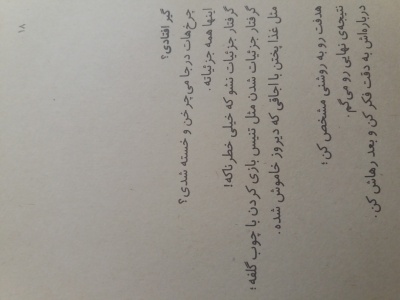 گیر افتادی؟
چرخ‌هات درجا می‌چرخن و خسته شدی؟
اینها همه جزئیاته.
گرفتار جزئیات نشو که خیلی خطرناکه!
گرفتار جزئیات شدن مثل تنیس بازی کردن با چوب گلفه؛
مثل غذا پختن با اجاقی که دیروز خاموش شده.
هدفت رو به روشنی مشخص کن؛
نتیجه‌ی نهایی رو می‌گم.
درباره‌اش به دقت فکر کن و بعد رهاش کن.
۱۸